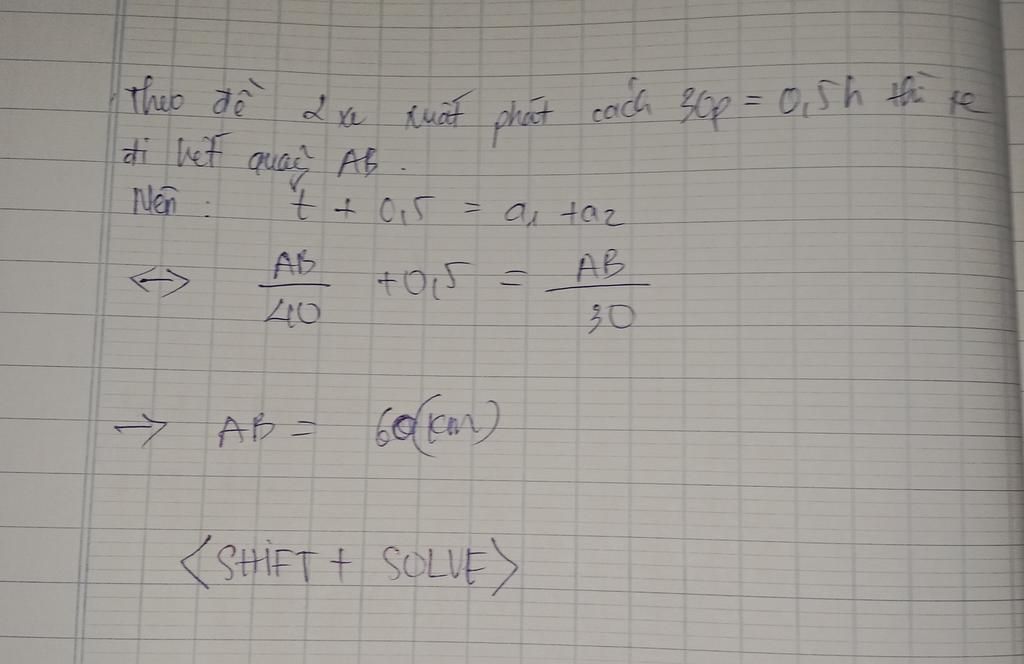 Theo đề 2 xe xuất phát cách 30p = 0,5h thì xe
đi hết quãng AB.
Nên: t + 0,5 = a1 + a2
<-> AB/40 + 0,5 = AB/30
-> AB = 60(km)
<SHIFT + SOLVE>